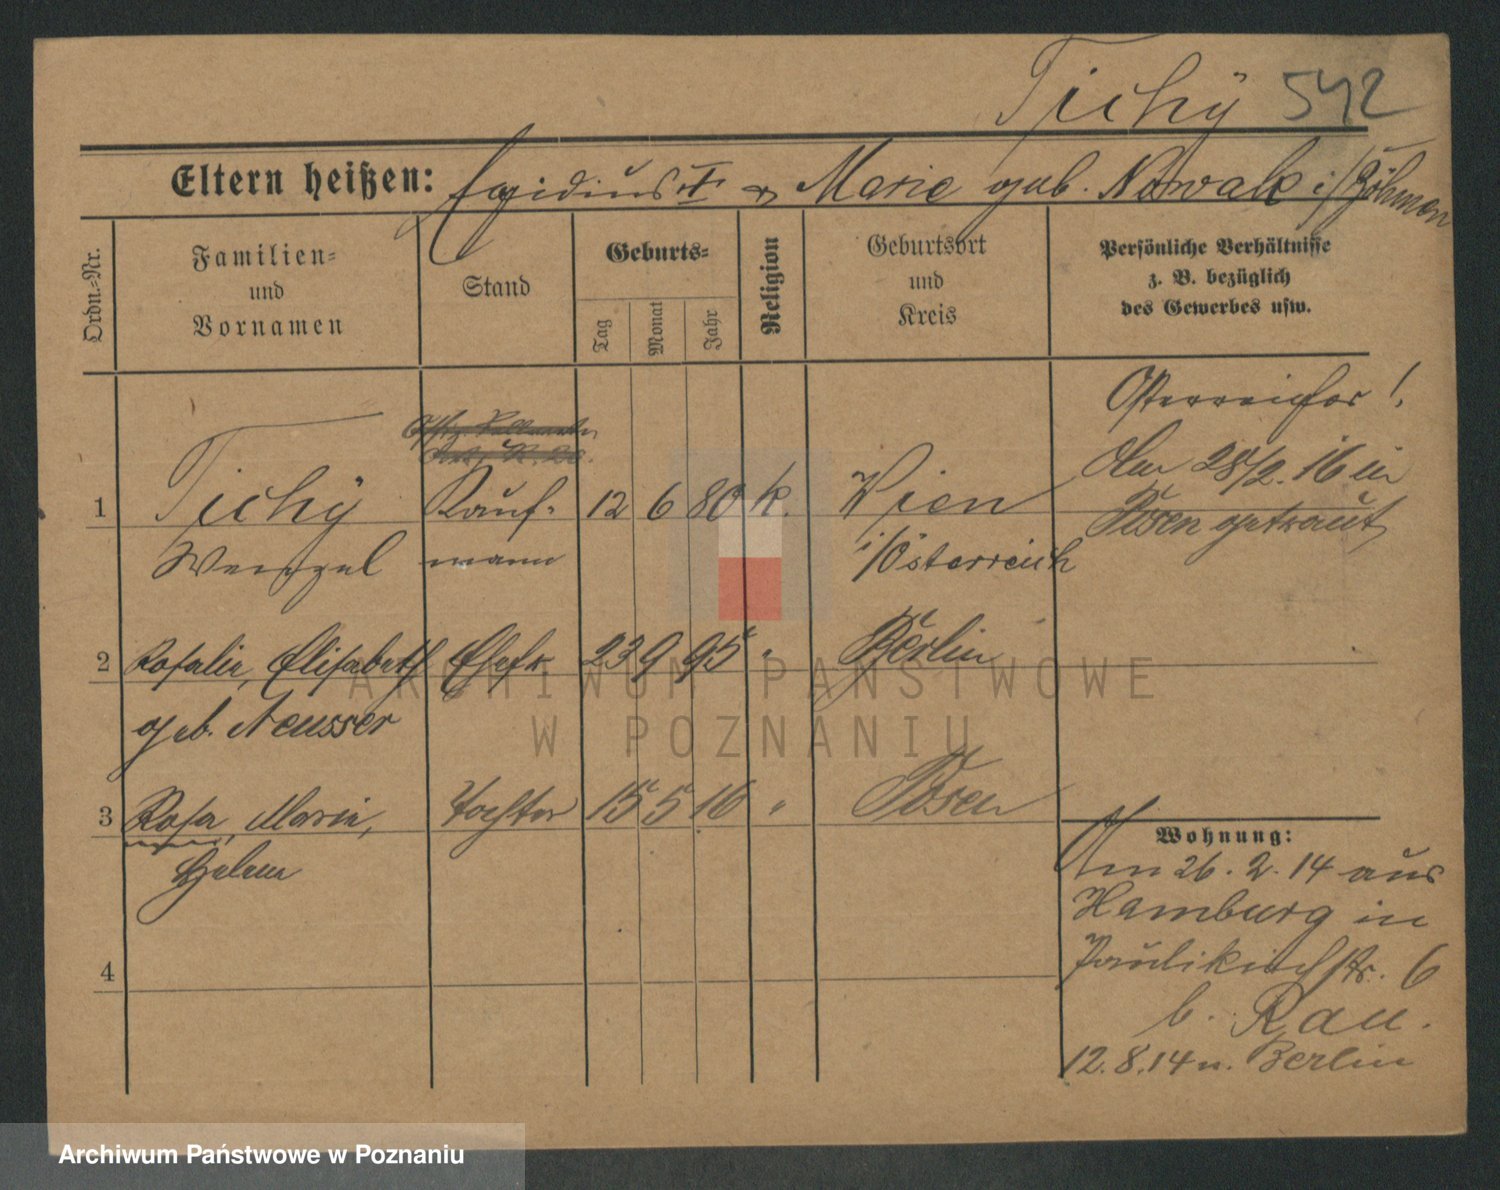 Tichÿ 542
Eltern heißen: Egidius † u. Marie geb. Nowak i/Böhmen
Ordn.-Nr.
Familien- und Vornamen
Stand
Geburts-
Tag
Monat
Jahr
Religion
Geburtsort und Kreis
Persönliche Verhältnisse
z. B. bezüglich
des Gewerbes usw.
Österreicher!
1 Tichÿ Kauf- 12 6 80 k. Wien
Wenzel mann i/Österreich
Am 28/2. 16 in
Posen getraut
2 Rosalie, Elisabeth Ehefr. 23 9 95 " Berlin
geb. Neusser
3 Rosa, Maria, Tochter 15 5 16 " Posen
Helene
4
Wohnung:
Am 26. 2. 14 aus
Hamburg in
Paulikirchstr. 6
b. Rau.
12. 8. 14 n. Berlin
ARCHIWUM PAŃSTWOWE
W POZNANIU
Archiwum Państwowe w Poznaniu